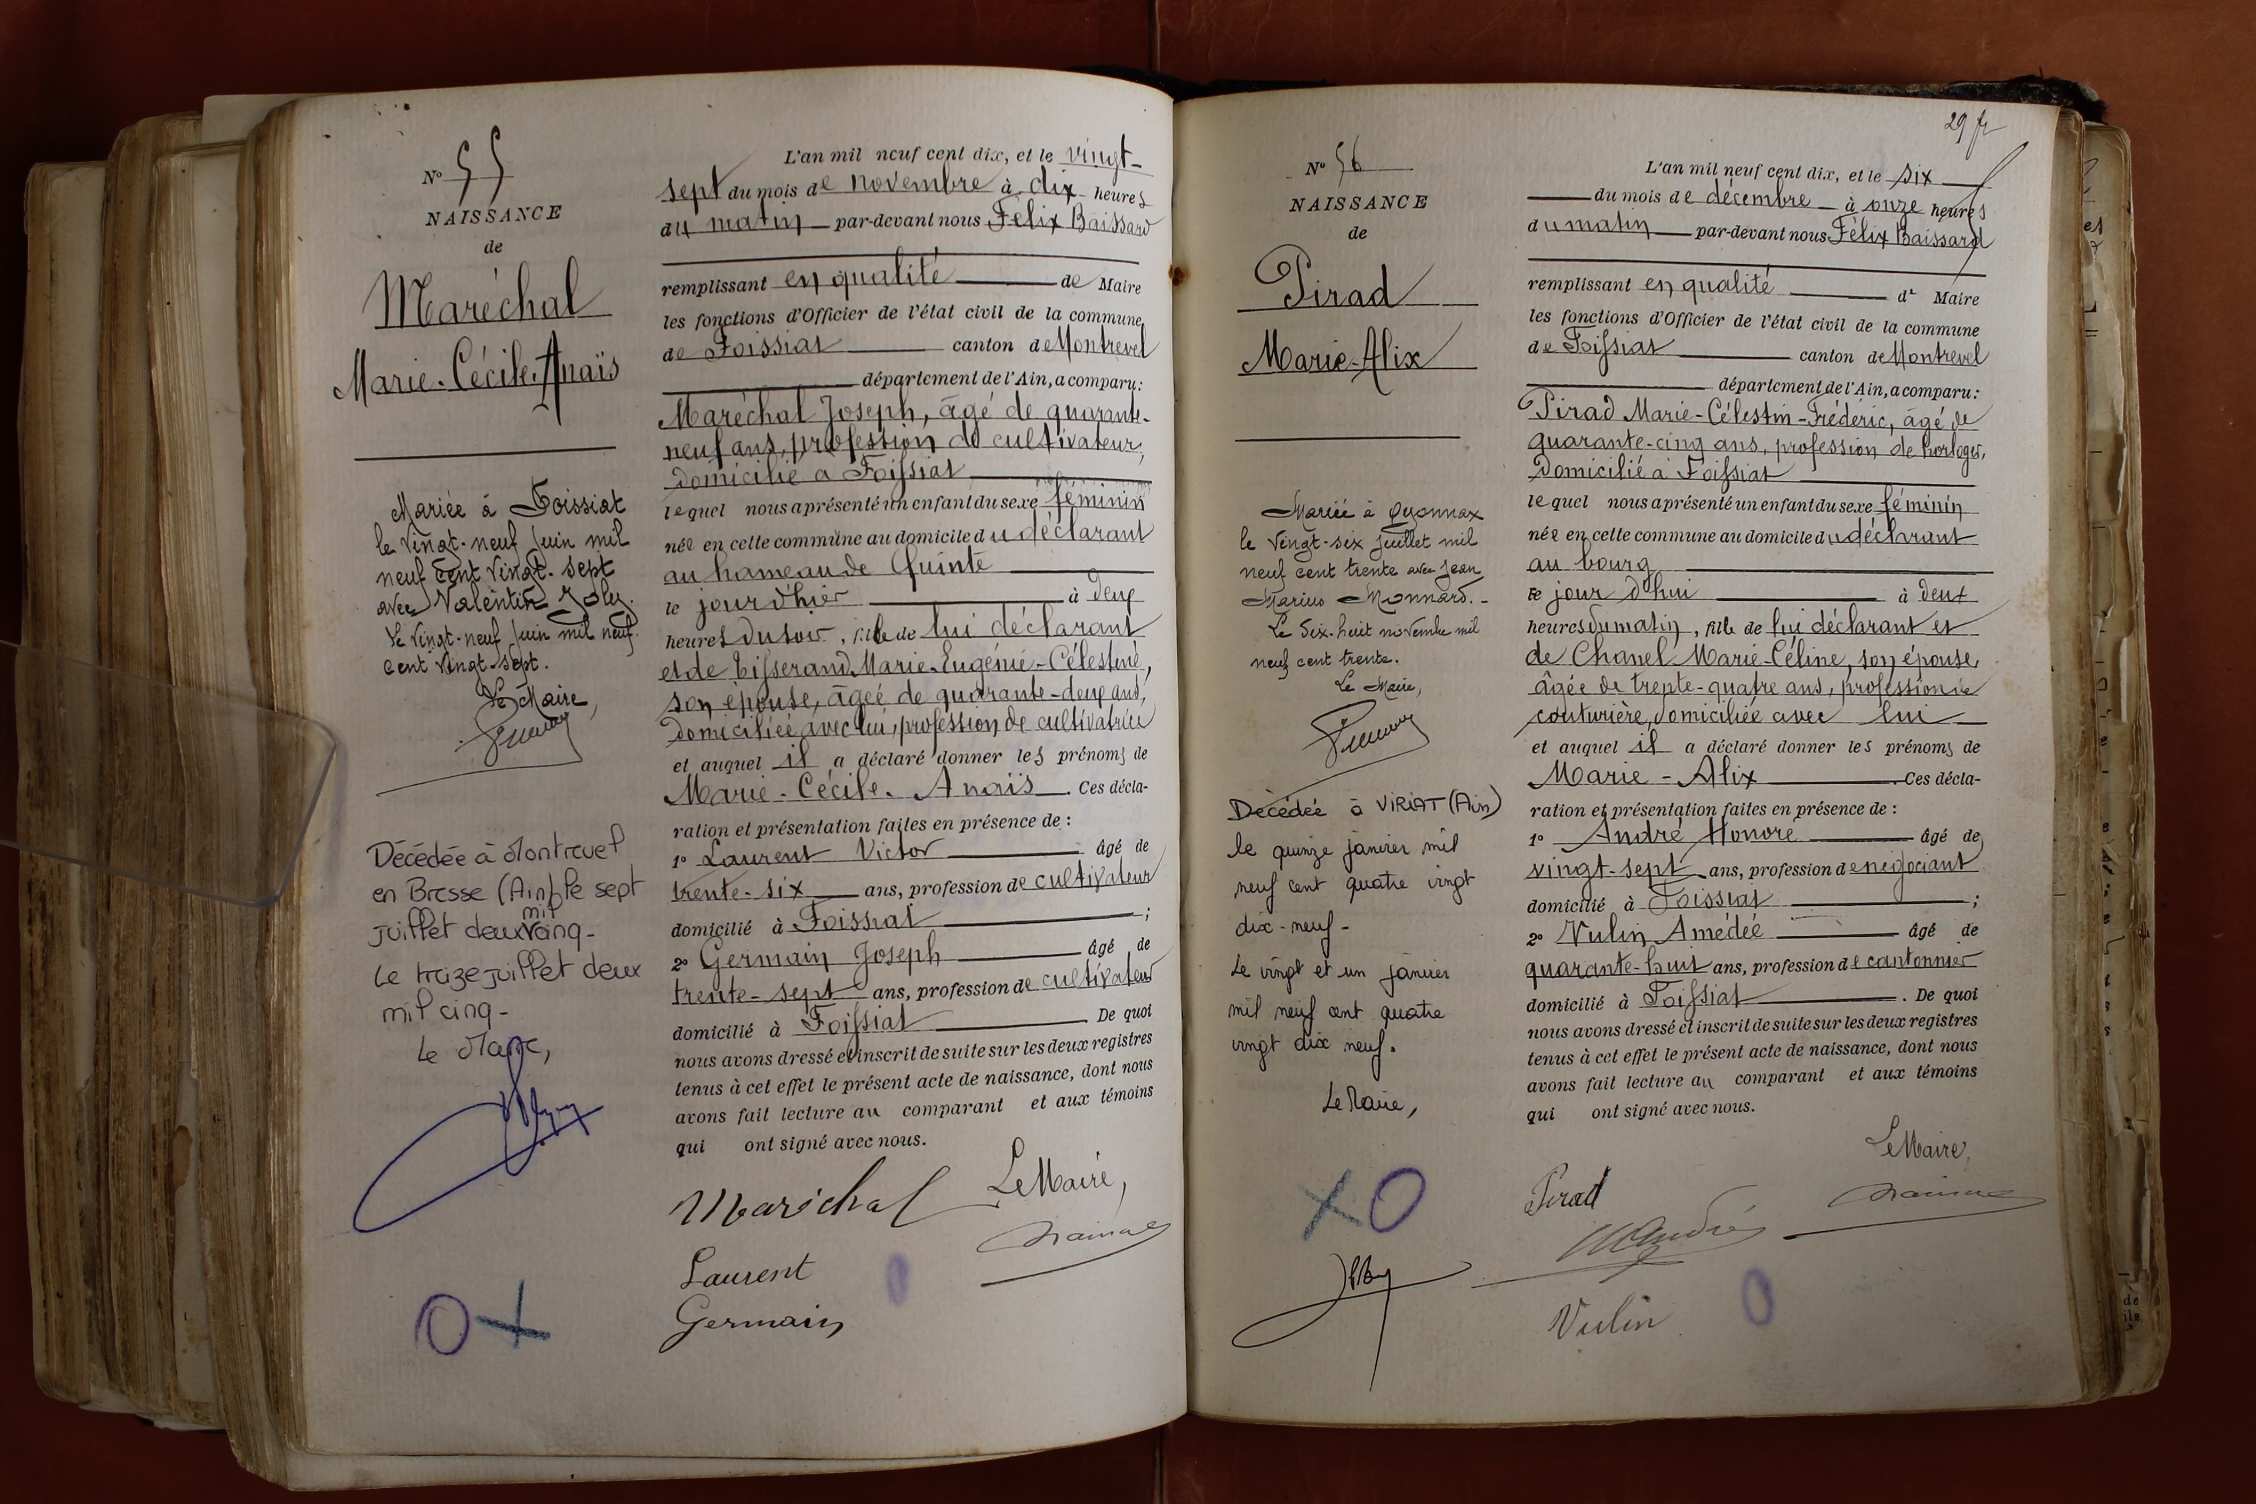 N° 55
NAISSANCE
de
Maréchal
Marie-Cécile-Anaïs
Mariée à Foissiat
le vingt-neuf juin mil
neuf cent vingt-sept
avec Valentin Joly.
Le vingt-neuf juin mil neuf
cent vingt-sept.
Le Maire,
Décédée à Montrevel
en Bresse (Ain) le sept
juillet deux mil cinq-
Le treize juillet deux
mil cinq-
Le Maire,
L'an mil neuf cent dix, et le vingt-
sept du mois de novembre à dix heures
du matin par-devant nous Félix Baissard
remplissant en qualité de Maire
les fonctions d'Officier de l'état civil de la commune
de Foissiat canton de Montrevel
département de l'Ain, a comparu:
Maréchal Joseph, âgé de quarante-
neuf ans, profession de cultivateur,
domicilié à Foissiat
lequel nous a présenté un enfant du sexe féminin
née en cette commune au domicile du déclarant
au hameau de Quinte
le jour d'hier à deux
heures du soir, fille de lui déclarant
et de Tisserand Marie-Eugénie-Célestine,
son épouse, âgée de quarante-deux ans,
domiciliée avec lui, profession de cultivatrice
et auquel il a déclaré donner les prénoms de
Marie-Cécile-Anaïs. Ces décla-
ration et présentation faites en présence de :
1° Laurent Victor âgé de
trente-six ans, profession de cultivateur
domicilié à Foissiat ;
2° Germain Joseph âgé de
trente-sept ans, profession de cultivateur
domicilié à Foissiat. De quoi
nous avons dressé et inscrit de suite sur les deux registres
tenus à cet effet le présent acte de naissance, dont nous
avons fait lecture au comparant et aux témoins
qui ont signé avec nous.
Maréchal
Le Maire,
Laurent
Germain
O X
29 fr
N° 56
NAISSANCE
de
Pirad
Marie-Alix
Mariée à Oyonnax
le vingt-six juillet mil
neuf cent trente avec Jean
Marius Monnard. -
Le dix-huit novembre mil
neuf cent trente.
Le Maire,
Décédée à VIRIAT (Ain)
le quinze janvier mil
neuf cent quatre vingt
dix-neuf-
Le vingt et un janvier
mil neuf cent quatre
vingt dix neuf.
Le Maire,
X O
L'an mil neuf cent dix, et le six
du mois de décembre à onze heures
du matin par-devant nous Félix Baissard
remplissant en qualité de Maire
les fonctions d'Officier de l'état civil de la commune
de Foissiat canton de Montrevel
département de l'Ain, a comparu:
Pirad Marie-Célestin-Frédéric, âgé de
quarante-cinq ans, profession de horloger,
domicilié à Foissiat
lequel nous a présenté un enfant du sexe féminin
née en cette commune au domicile du déclarant
au bourg
ce jour d'hui à deux
heures du matin, fille de lui déclarant et
de Chanel Marie-Céline, son épouse,
âgée de trente-quatre ans, profession de
couturière, domiciliée avec lui
et auquel il a déclaré donner les prénoms de
Marie-Alix. Ces décla-
ration et présentation faites en présence de :
1° André Honoré âgé de
vingt-sept ans, profession de négociant
domicilié à Foissiat ;
2° Vulin Amédée âgé de
quarante-huit ans, profession de cantonnier
domicilié à Foissiat. De quoi
nous avons dressé et inscrit de suite sur les deux registres
tenus à cet effet le présent acte de naissance, dont nous
avons fait lecture au comparant et aux témoins
qui ont signé avec nous.
Le Maire,
Pirad
H André
Vulin